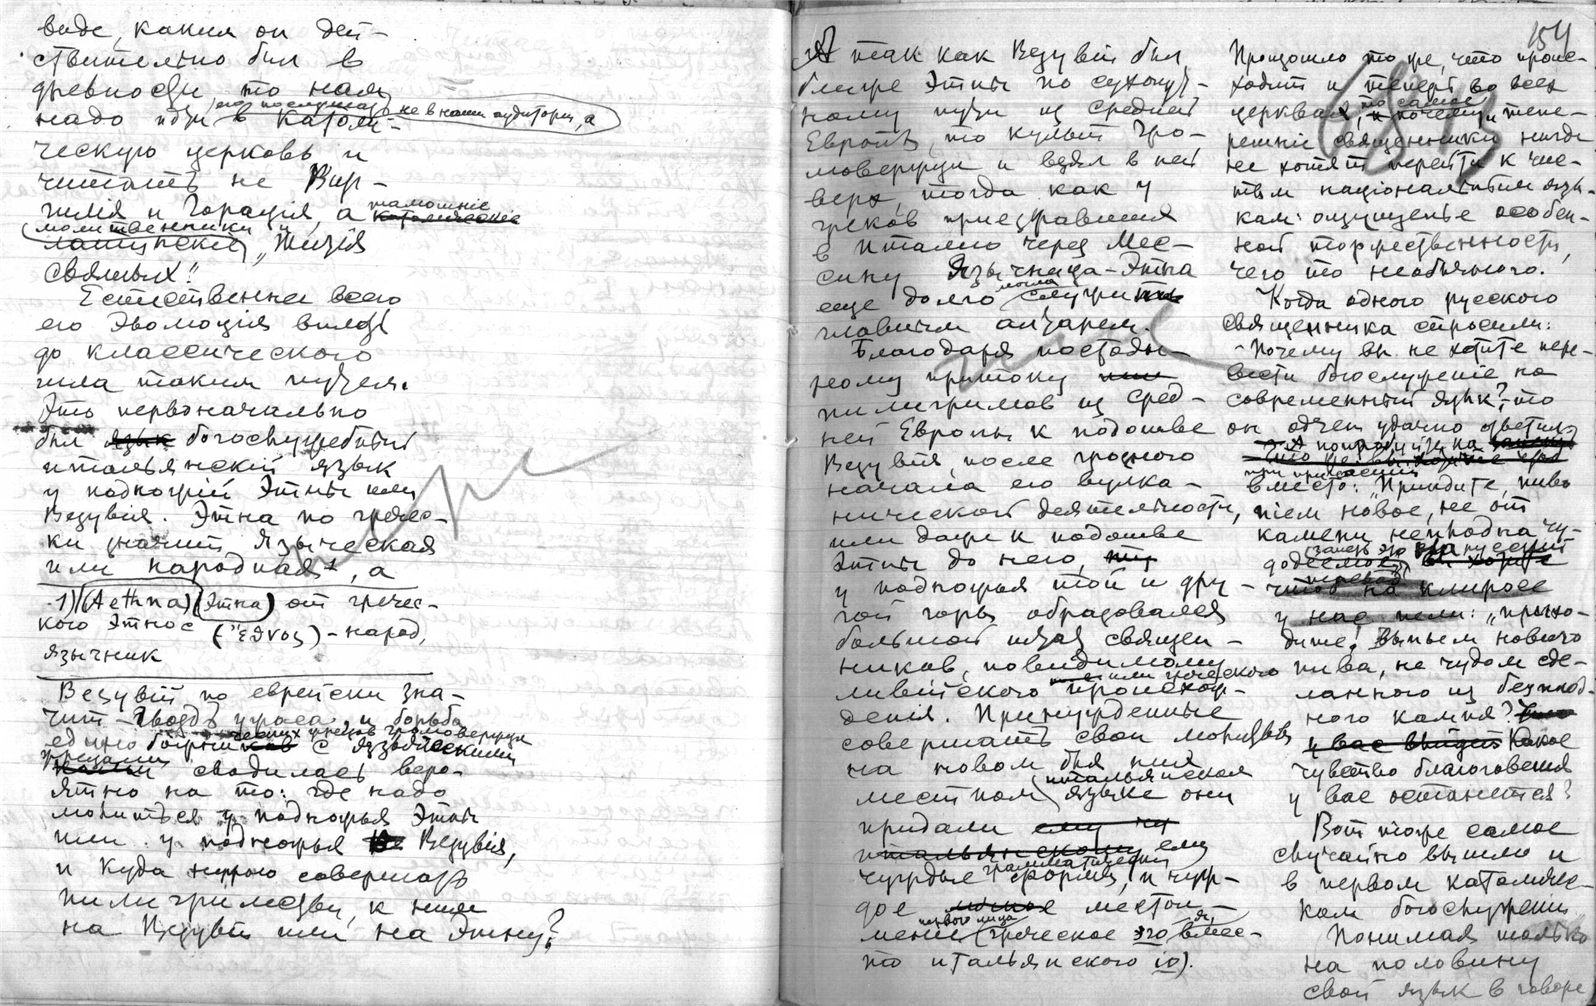 виде, каким он дей-
ствительно был в
древности то нам
надо идти его послушать не в наши аудитории, а в католи-
ческую церковь и
читать не Вир-
гилія и Горація, а тамошніе
молитвенники и
латинскіе „Житія
святых“.
Естественнее всего
его эволюція вплоть
до классического
шла таким путем.
Это первоначально
был язык богослужебный
итальянскій язык
у подножій Этны или
Везувія. Этна по гречес-
ки значит языческая
или народная 1, а
1) (Aethna) (Этна) от гречес-
кого Этнос (ἔθνος) - народ,
язычник
Везувій по еврейски зна-
чит - Гвоздь ужаса и борьба
единобожников с языческими
сводилась веро-
ятно на то: где надо
молиться у подножья Этны
или у подножья Везувія,
и куда нужно совершать
пилигримства, к ним
на Везувій или на Этну?
154
А так как Везувій был
ближе Этны по сухопут-
ному пути из средней
Европы, то культ Гро-
мовержца и взял в ней
верх, тогда как у
греков приезжавших
в Италію через Мес-
сину Язычница-Этна
еще долго могла служить
главным алтарем.
Благодаря постоян-
ному притоку
пилигримов из Сред-
ней Европы к подошве
Везувія, после грозного
начала его вулка-
нической деятельности,
или даже к подошве
Этны до него,
у подножья той и дру-
гой горы образовался
большой штат священ-
ников, повидимому
ливійского или греческого происхож-
денія. Принужденные
совершать свои молитвы
на новом для них
местном итальянском языке они
придали ему
итальянскому ему
чуждые грамматически формы, и чуж-
дое местои-
меніе первого лица (греческое эго вмес-
то итальянского io).
Произошло то же, что проис-
ходит и теперь во всех
церквах, то самое почему и тепе-
решніе священники нигде
не хотят перейти к чис-
тым національным язы-
кам: ощущенье особен-
ной торжественности,
чего то необычного.
Когда одного русского
священника спросили:
- Почему вы не хотите пере-
вести богослуженіе на
современный язык? то
он очень удачно ответил:
вместо: „Пріидите, пиво
піем новое, не от
камени неплодна чу-
додеемое
чтоб на клиросе
у нас пели: „прихо-
дите! Выпьем нового
пива, не чудом сде-
ланного из безплод-
ного камня? Какое
чувство благоговения
у вас останется?
Вот тоже самое
случайно вышло и
в первом католичес-
ком богослужении
Понимая только
на половину
свой язык в говоре